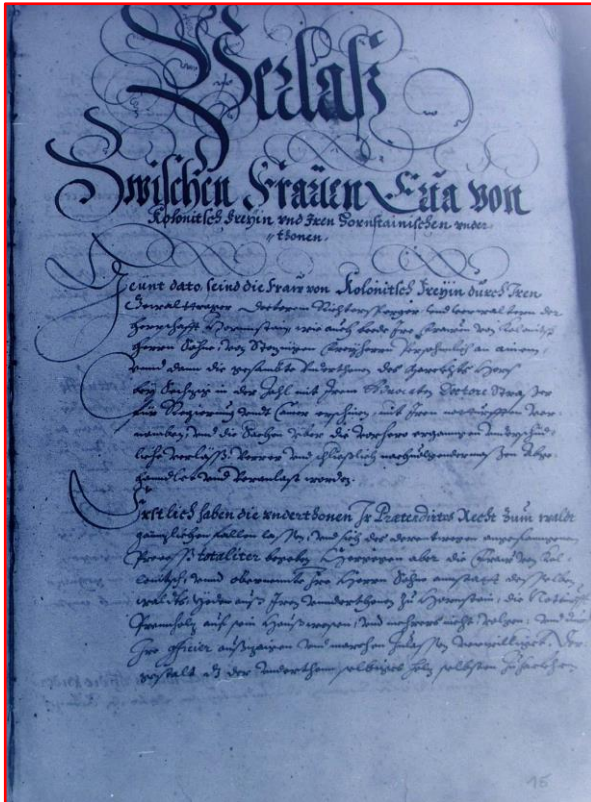 Verlaß
Zwischen Frauen Eua von
Kolonitsch Freyin vnd Iren Hornstainischen vnder-
thonen.
Heunt dato, seind die Fraw von Kolonitsch Freyin durch Iren
Gewalttrager Doctorem vnd verwaltern der
Herrschafft Hornnstain, wie auch beede Ire Frawen von Kolonitsch
Herrn Söhne, von Freyherrn Persohnlich an ainem,
vnnd dann die gesambte Vnderthonen des
bey Sechzig in der Zahl mit Irem Aduocaten Doctore
für Regierung vnndt Camer erschinen, mit Iren notturfften
vnd die Sachen vber die vorhero ergangen vnderschid-
liche verlässe, verrer vnd schließlich nachuolgendermassen abge-
handlet vnd veranlast worden.
Erstlich haben die vnderthonen Ir Prætendirtes Recht zum waldt
gänzlichen fallen lassen, vnd sich des derentwegen angefangenen
Process totaliter begeben, Hergegen aber die Fraw von Kol-
lonitsch, vnnd obernennte Ire Herrn Söhne anstatt desselben
waldts, Jeden auß Iren vnnderthonen zu Hornstain, die Notturfft
Prennholz auf sein Haußwesen, vnd mehrers nicht volgen, vnd durch
Ire officier außzaigen vnd zulassen verwilliget, Der-
gestalt dz der vnderthon selbiges holz selbsten
15